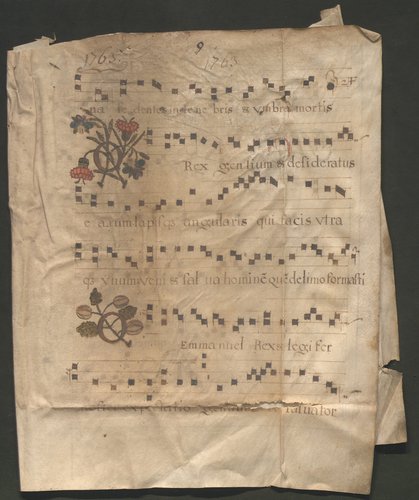 1765 9 1765
na sedentes in tene bris & vmbra mortis
O Rex gentium & desideratus
e arum lapisqs angularis qui facis vtra
qz vnum veni & sal ua hominē quē de limo formasti
O Emmanuel Rex & legi fer
expectatio gentium saluator